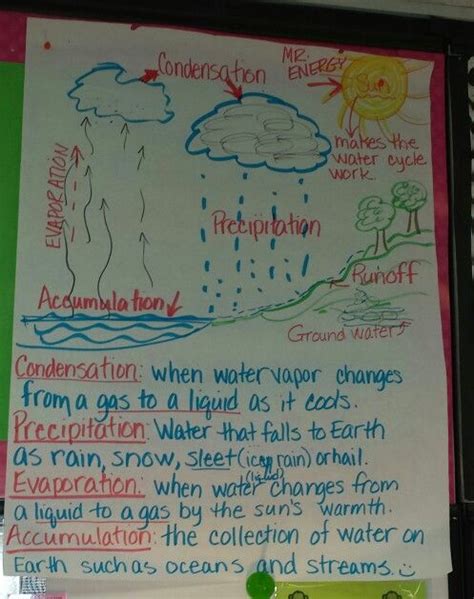 Condensation
MR.
ENERGY
Sun
makes the
water cycle
work.
EVAPORATION
Precipitation
Accumulation
Runoff
Ground water
Condensation: when water vapor changes
from a gas to a liquid as it cools.
Precipitation: Water that falls to Earth
as rain, snow, sleet (icy rain) or hail.
(liquid)
Evaporation: when water changes from
a liquid to a gas by the sun's warmth.
Accumulation: the collection of water on
Earth such as oceans and streams.